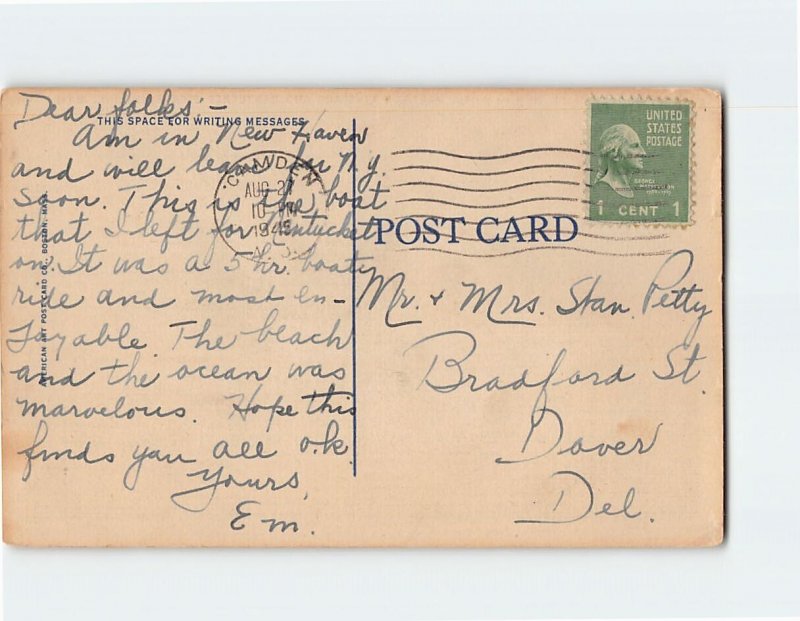 Dear folks:-
THIS SPACE FOR WRITING MESSAGES
Am in New Haven
and will leave for N.Y.
soon. This is the boat
that I left for Nantucket
on. It was a 5 hr. boat
ride and most en-
joyable. The beach
and the ocean was
marvelous. Hope this
finds you all o.k.
Yours,
Em.
AMERICAN ART POST CARD CO., BOSTON, MASS.
CAMDEN
AUG 27
10 PM
194
UNITED
STATES
POSTAGE
GEORGE
WASHINGTON
1 CENT 1
POST CARD
Mr. + Mrs. Stan. Petty
Bradford St.
Dover
Del.